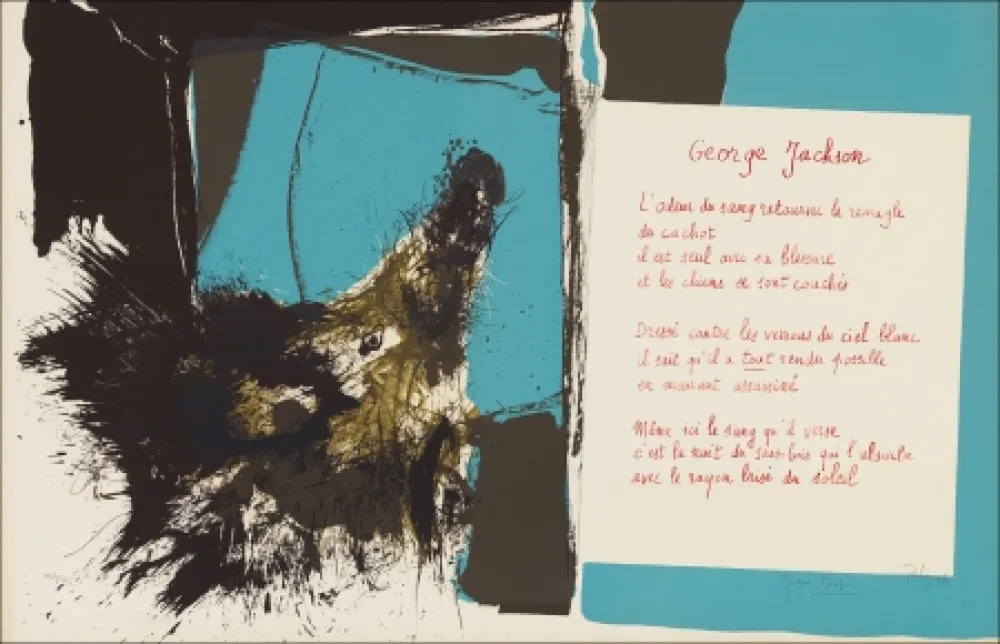 George Jackson
L'odeur du sang retourne le remugle
du cachot
il est seul avec sa blessure
et les chiens se sont couchés
Dressé contre les verrous du ciel blanc
il sait qu'il a tout rendu possible
en mourant assassiné
Même ici le sang qu'il verse
c'est la nuit du sous-bois qui l'absorbe
avec le rayon brisé du soleil